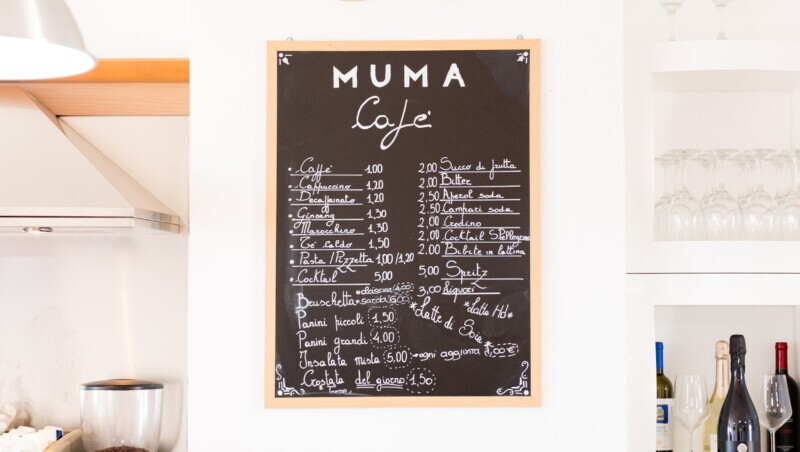 MUMA
Cafè
Caffè 1,00
Cappuccino 1,20
Decaffeinato 1,20
Ginseng 1,30
Marocchino 1,30
Tè caldo 1,50
Pasta/Pizzetta 1,00/1,20
Cocktail 5,00
2,00 Succo di frutta
2,00 Bitter
2,50 Aperol soda
2,50 Campari soda
2,00 Crodino
2,00 Cocktail S.Pellegrino
2,00 Bibite in lattina
5,00 Spritz
3,00 Liquori
Bruschetta
Panini piccoli 1,50
Panini grandi 4,00
Insalata mista 5,00 *ogni aggiunta 1,00€
Crostata del giorno 1,50
*Latte di Soia*
*Latte Hd*